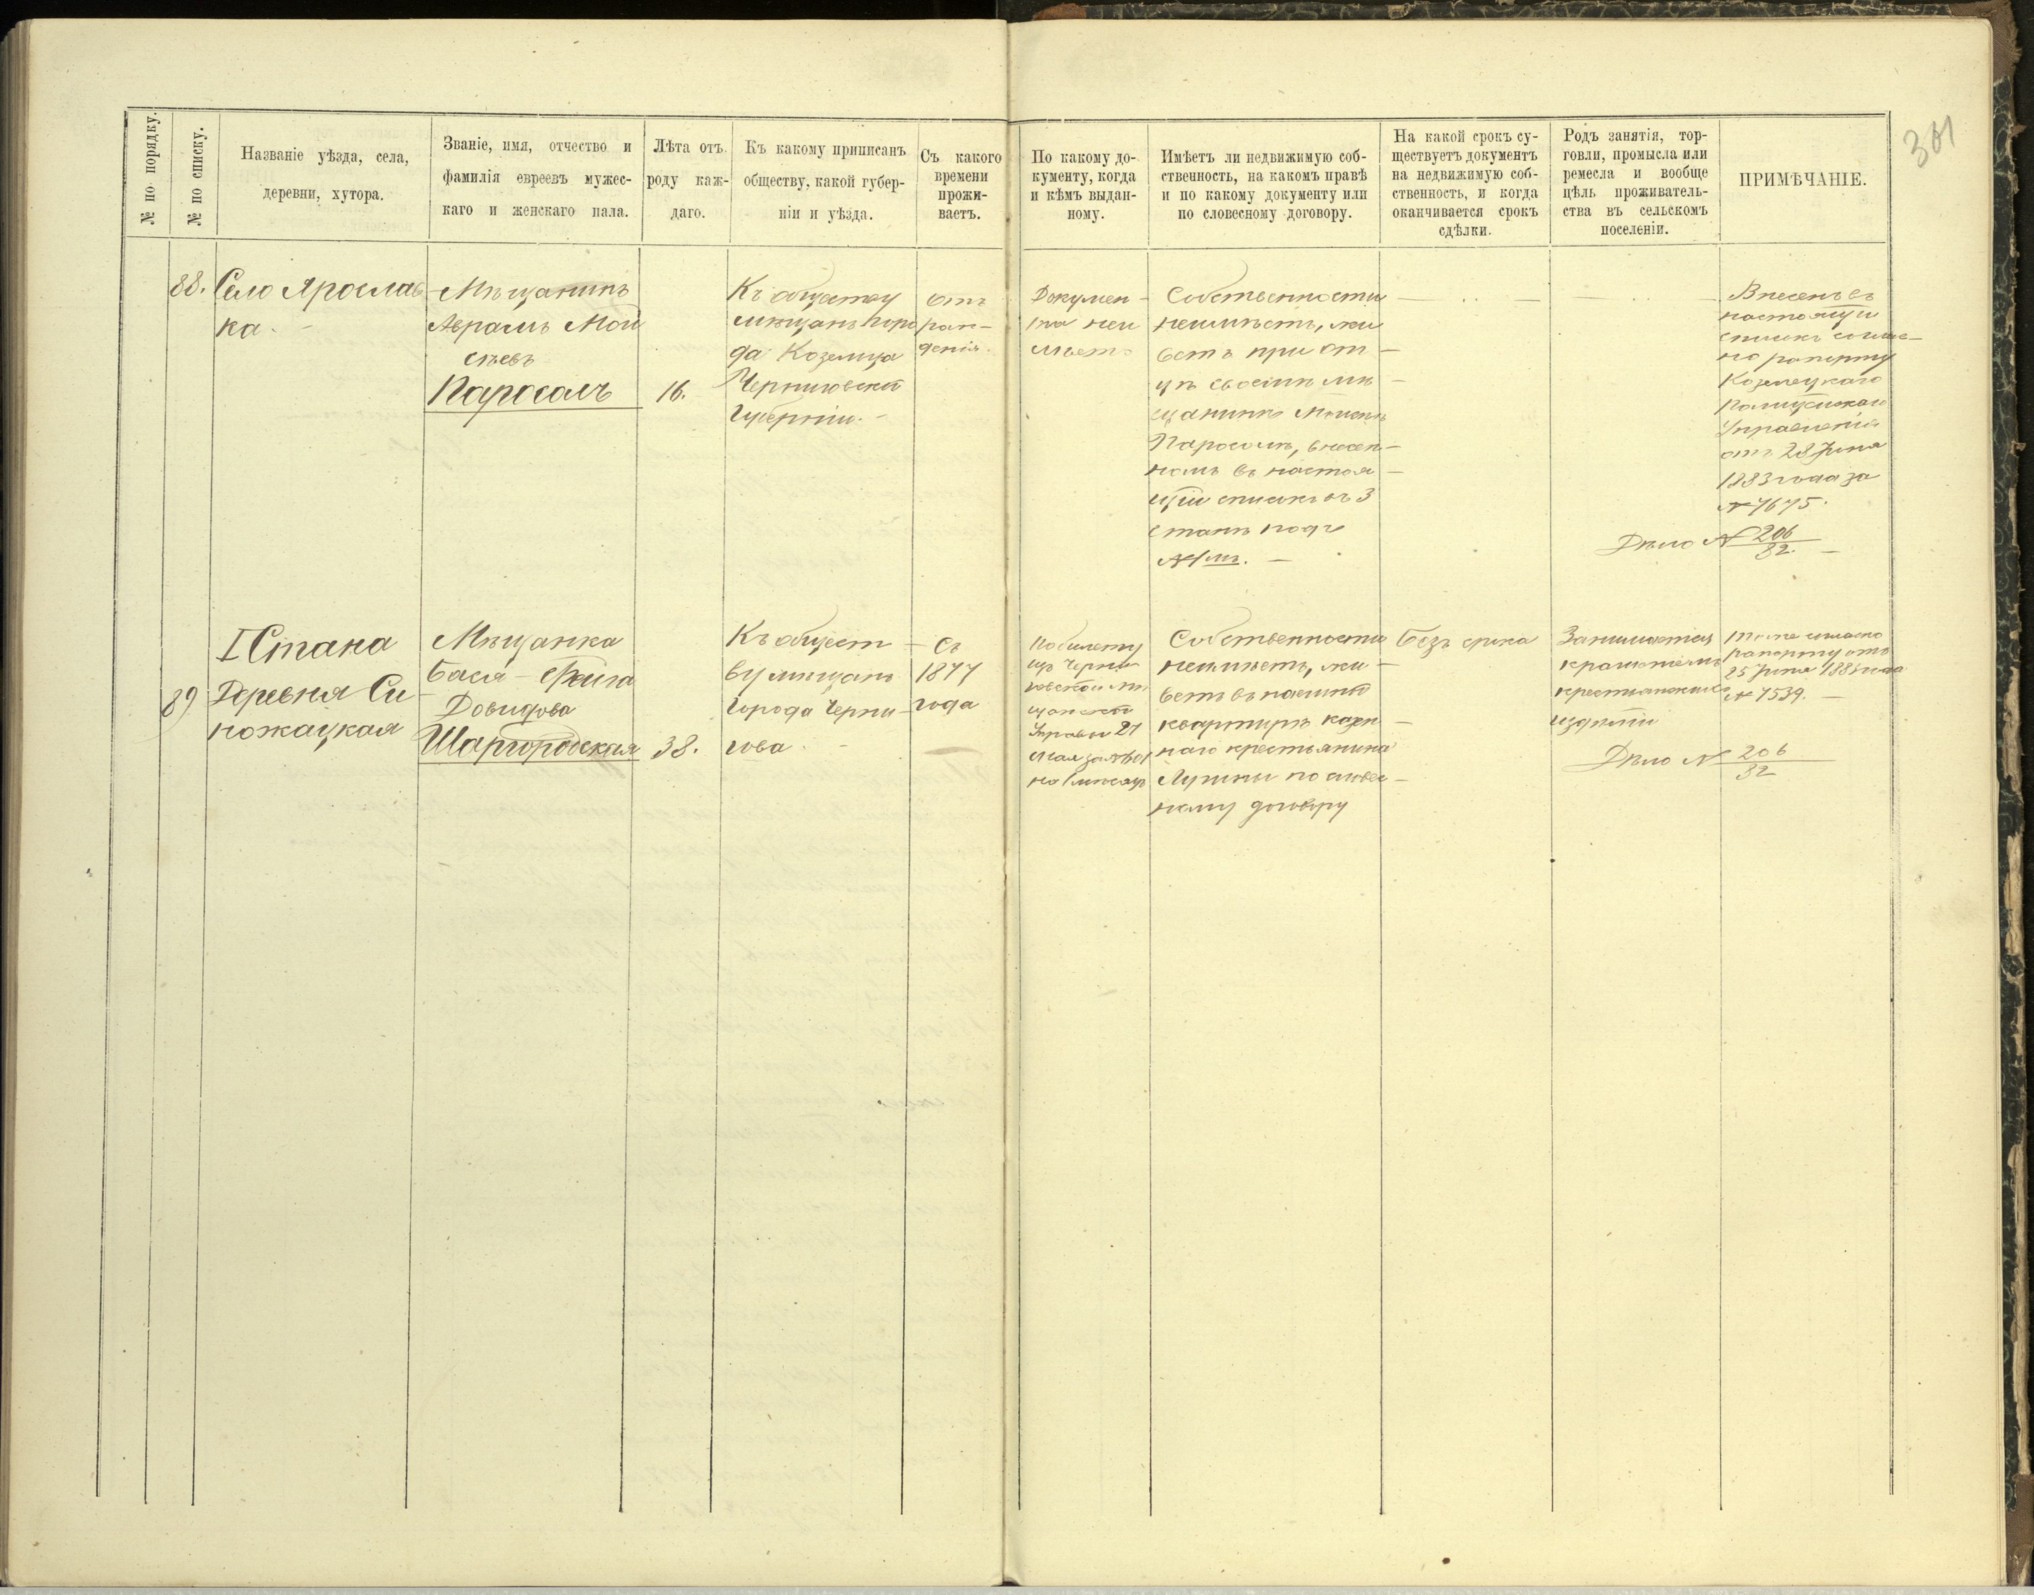 361
№ по порядку.
№ по списку.
Названіе уѣзда, села,
деревни, хутора.
Званіе, имя, отчество и
фамилія евреевъ мужес-
каго и женскаго пала.
Лѣта отъ
роду каж-
даго.
Къ какому приписанъ
обществу, какой губер-
ніи и уѣзда.
Съ какого
времени
прожи-
ваетъ.
По какому до-
кументу, когда
и кѣмъ выдан-
ному.
Имѣетъ ли недвижимую соб-
ственность, на какомъ правѣ
и по какому документу или
по словесному договору.
На какой срокъ су-
ществуетъ документъ
на недвижимую соб-
ственность, и когда
оканчивается срокъ
сдѣлки.
Родъ занятія, тор-
говли, промысла или
ремесла и вообще
цѣль проживатель-
ства въ сельскомъ
поселеніи.
ПРИМѢЧАНІЕ.
88.
Село Ярослав
ка.
Мѣщанинъ
Абрамъ Мой
сѣевъ
Паросолъ
16.
Къ обществу
мѣщанъ горо
да Козельца
Черниговской
Губерніи.
отъ
рож-
денія.
Докумен-
та неи
мѣетъ
Собственности
неимѣетъ, жи
ветъ при от-
цѣ своемъ мѣ-
щанинѣ
Паросолъ, внесен-
номъ въ настоя-
щій списокъ въ 3
станѣ подъ
Внесенъ въ
настоящій
списокъ соглас-
но рапорту
Козелецкаго
Полицейскаго
Управленія
отъ 28 Іюня
1883 года за
№ 7675.
Дѣло № 206
82.
89
I Стана
Деревня Си
ножацкая
Мѣщанка
Бася-Фейга
Довидова
Шаргородская
38.
Къ общест-
ву мѣщанъ
города Черни-
гова.
съ
1877
года
По билету
изъ Черни-
говской мѣ
щанской
Управы 27
Мая за №
Собственности
неимѣетъ, жи-
ветъ въ наемной
квартирѣ казен-
наго крестьянина
по словес-
ному договору
безъ срока
Занимается
крашеніемъ
крестьянскихъ
издѣлій
Тоже согласно
рапорту отъ
25 Іюня 1883 года
№ 7539.
Дѣло № 206
82